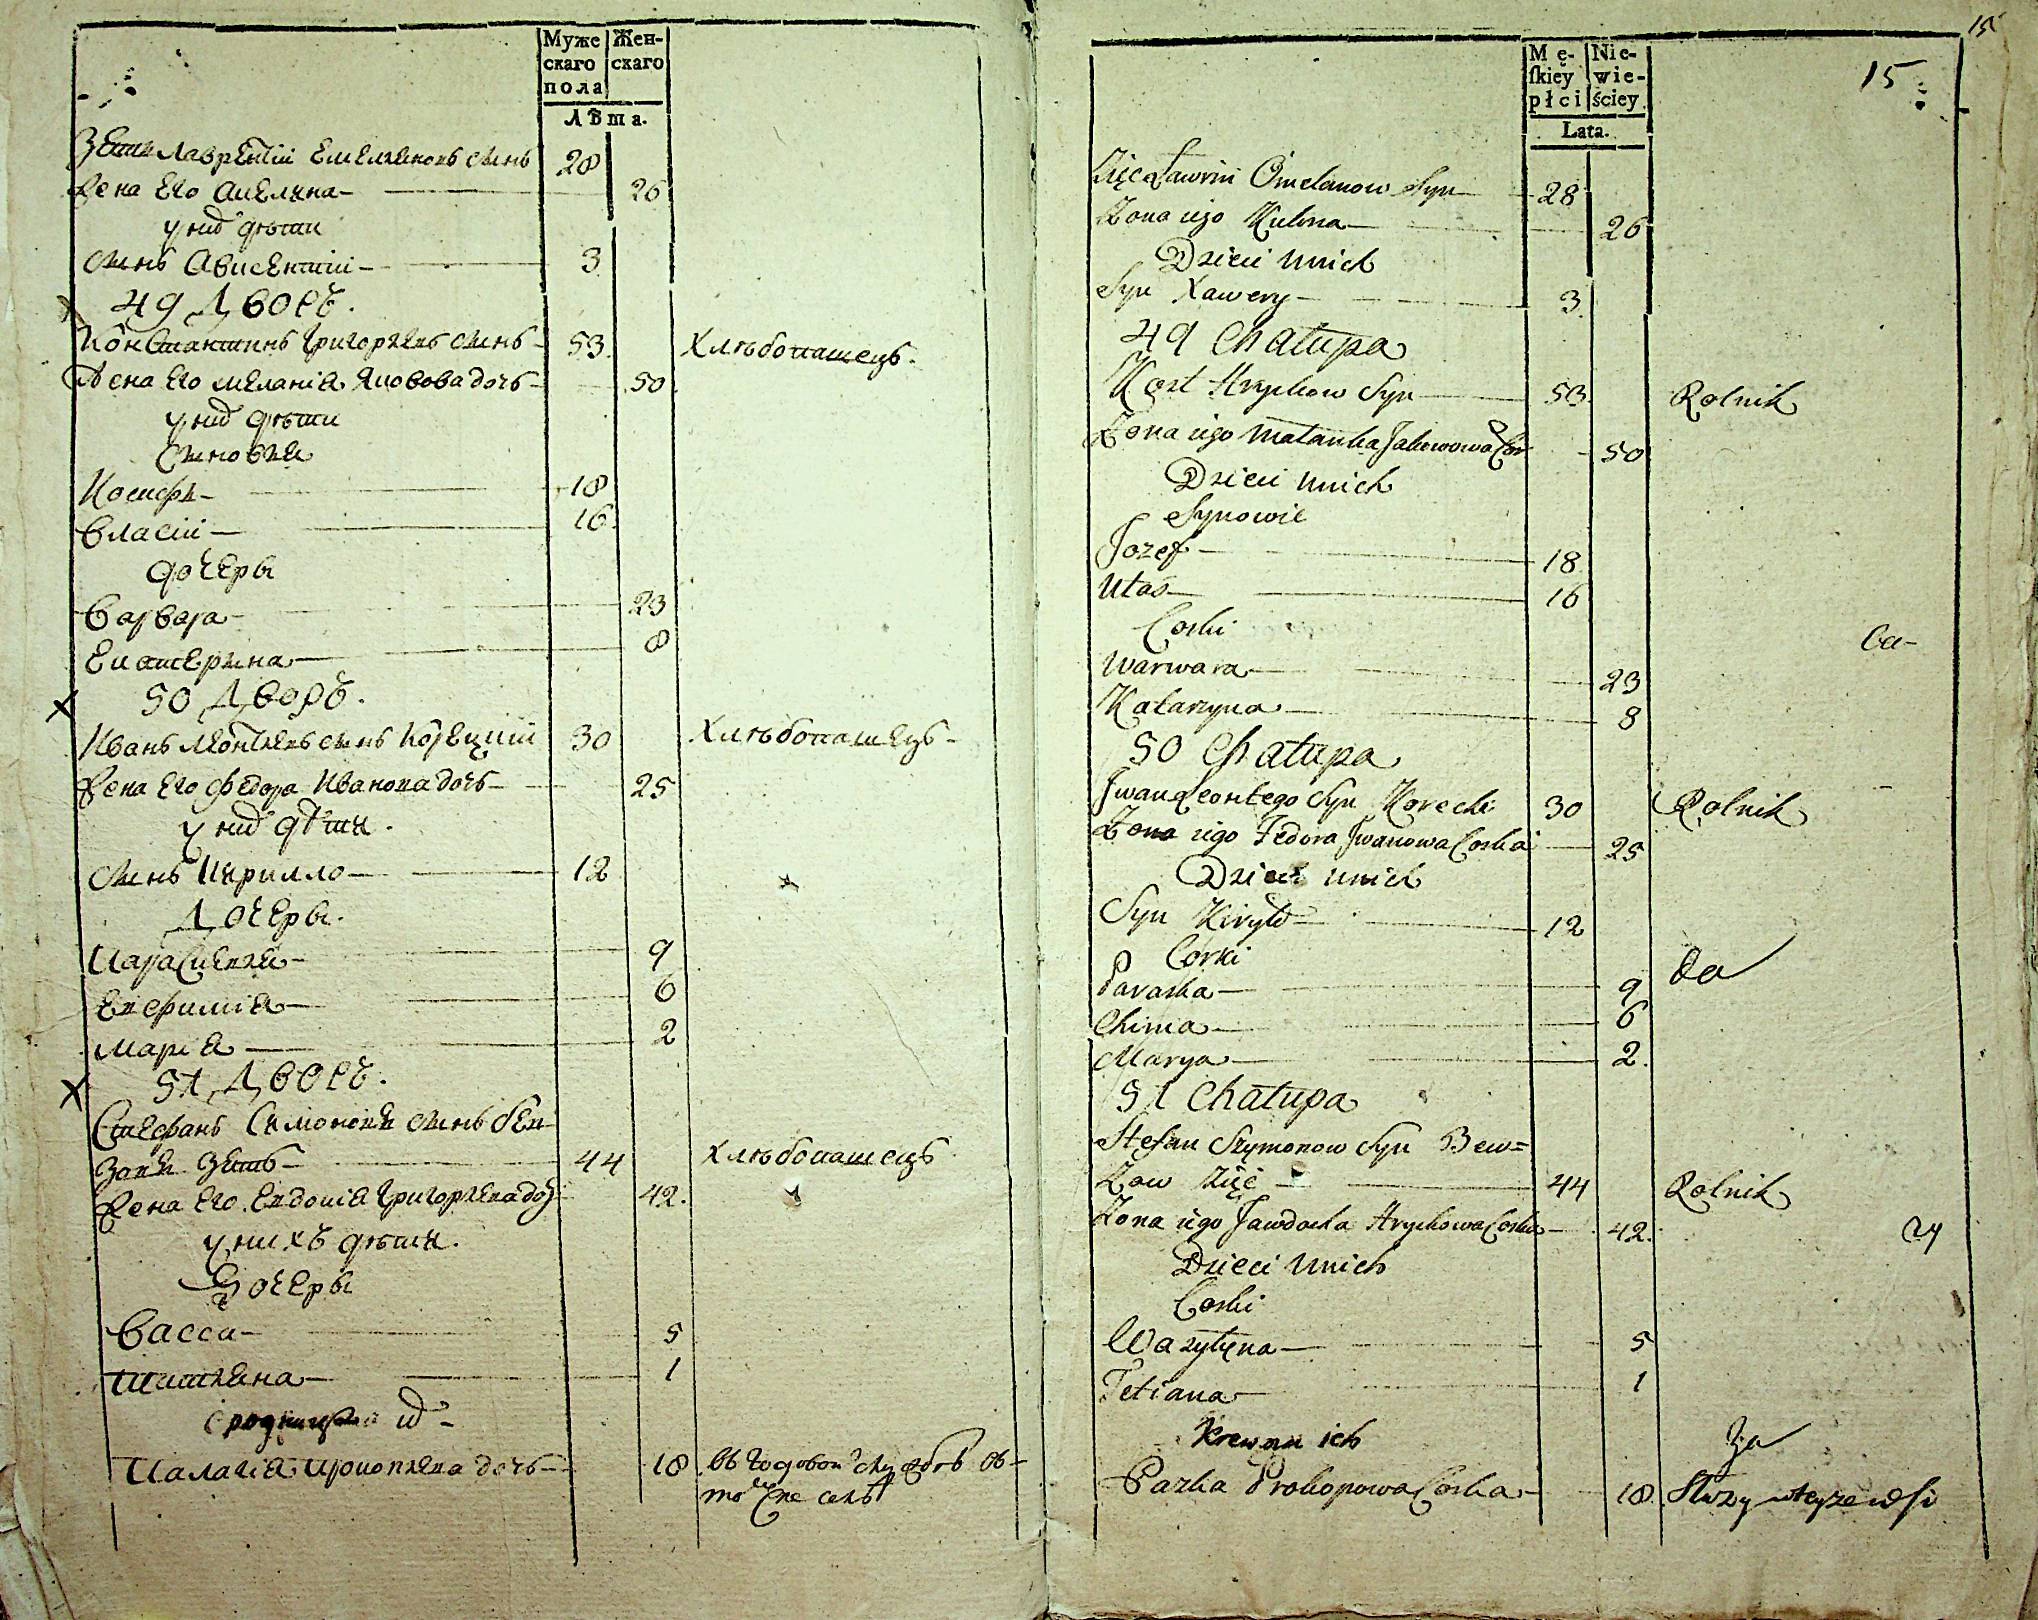 Муже Жен-
скаго скаго
пола
Лѣта.
Зять Лаврентій Емельяновъ сынъ 28
Жена Его Акелина 26
у нихъ дѣти
сынъ Авксентій 3
49 Дворъ.
Константинъ Григорьевъ сынъ 53. Хлѣбопашецъ.
Жена Его Меланія Яковова дочь 50
у нихъ дѣти
Сыновья
Иосифъ 18
Власій 16.
дочеры
Варвара 23
Екатерина 8
50 Дворъ.
Иванъ Леонтьевъ сынъ Корецкій 30 Хлѣбопашецъ
Жена Его Федора Иванова дочь 25
у нихъ дѣти.
сынъ Кирилло 12
Дочеры.
Параскевия 9
Евфимия 6
Мария 2
51 Дворъ.
Стефанъ Симоновъ сынъ Бев-
зовъ Зять 44 Хлѣбопашецъ
Жена Его Евдокия Григорьева доч 42.
у нихъ дѣти.
Дочеры
Васса 5
Татиана 1
их
Палагия Прокопьева дочь 18 въ годовой службѣ въ
той же селѣ
15
Mę- Nie-
ſkiey wie-
płci ściey.
Lata.
15
Zięć Ławrin Omelanow Syn 28
Żona iego Kulina 26
Dzieci unich
Syn Xawery 3
49 Chałupa
Kost Hryckow Syn 53. Rolnik
Żona iego Małanka Jakowowa Cor 50
Dzieci unich
Synowie
Jozef 18
Ułas 16
Corki
Warwara 23
Katarzyna 8
50 Chałupa
Iwan Leontego Syn Korecki 30 Rolnik
Żona iego Fedora Iwanowa Corka 25
Dzieci unich
Syn Kiryło 12
Corki
Paraska 9
Chima 6
Marya 2.
51 Chałupa
Stefan Szymonow Syn Bew=
Zow Zięć 44 Rolnik
Żona iego Jawdocka Hryckowa Corka 42.
Dzieci unich
Corki
Wasylyna 5
Tetiana 1
Krewna ich
Pazka Prokopowa Corka 18. Służy wteyże wsi